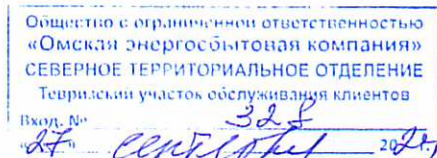 Общество с ограниченной ответственностью
«Омская энергосбытовая компания»
СЕВЕРНОЕ ТЕРРИТОРИАЛЬНОЕ ОТДЕЛЕНИЕ
Тевризский участок обслуживания клиентов
Вход. № 328
«27» сентября 202 г.